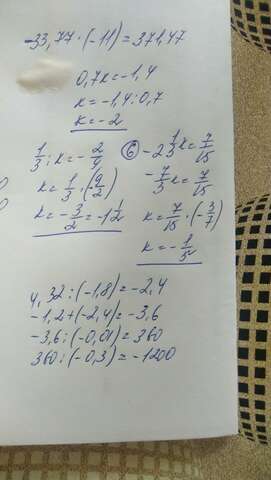 -33,77·(-11)=371,47
0,7к=-1,4
к=-1,4:0,7
к=-2
1/3:к=-2/9
к=1/3·(-9/2)
к=-3/2=-1 1/2
⑥ -2 1/3к=7/15
-7/3к=7/15
к=7/15·(-3/7)
к=-1/5
4,32:(-1,8)=-2,4
-1,2+(-2,4)=-3,6
-3,6:(-0,01)=360
360:(-0,3)=-1200